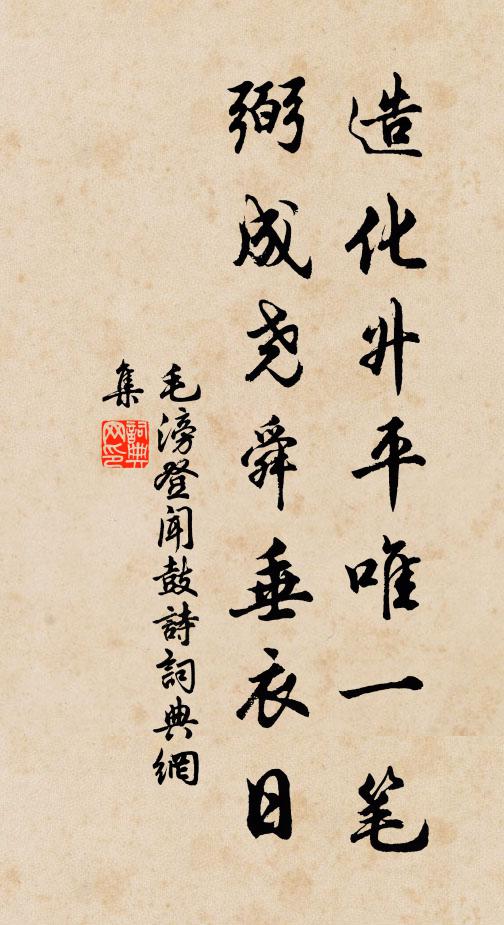 造化升平唯一笔
弼成尧舜垂衣日
毛滂登闻鼓詩詞典網
集
詞典网印